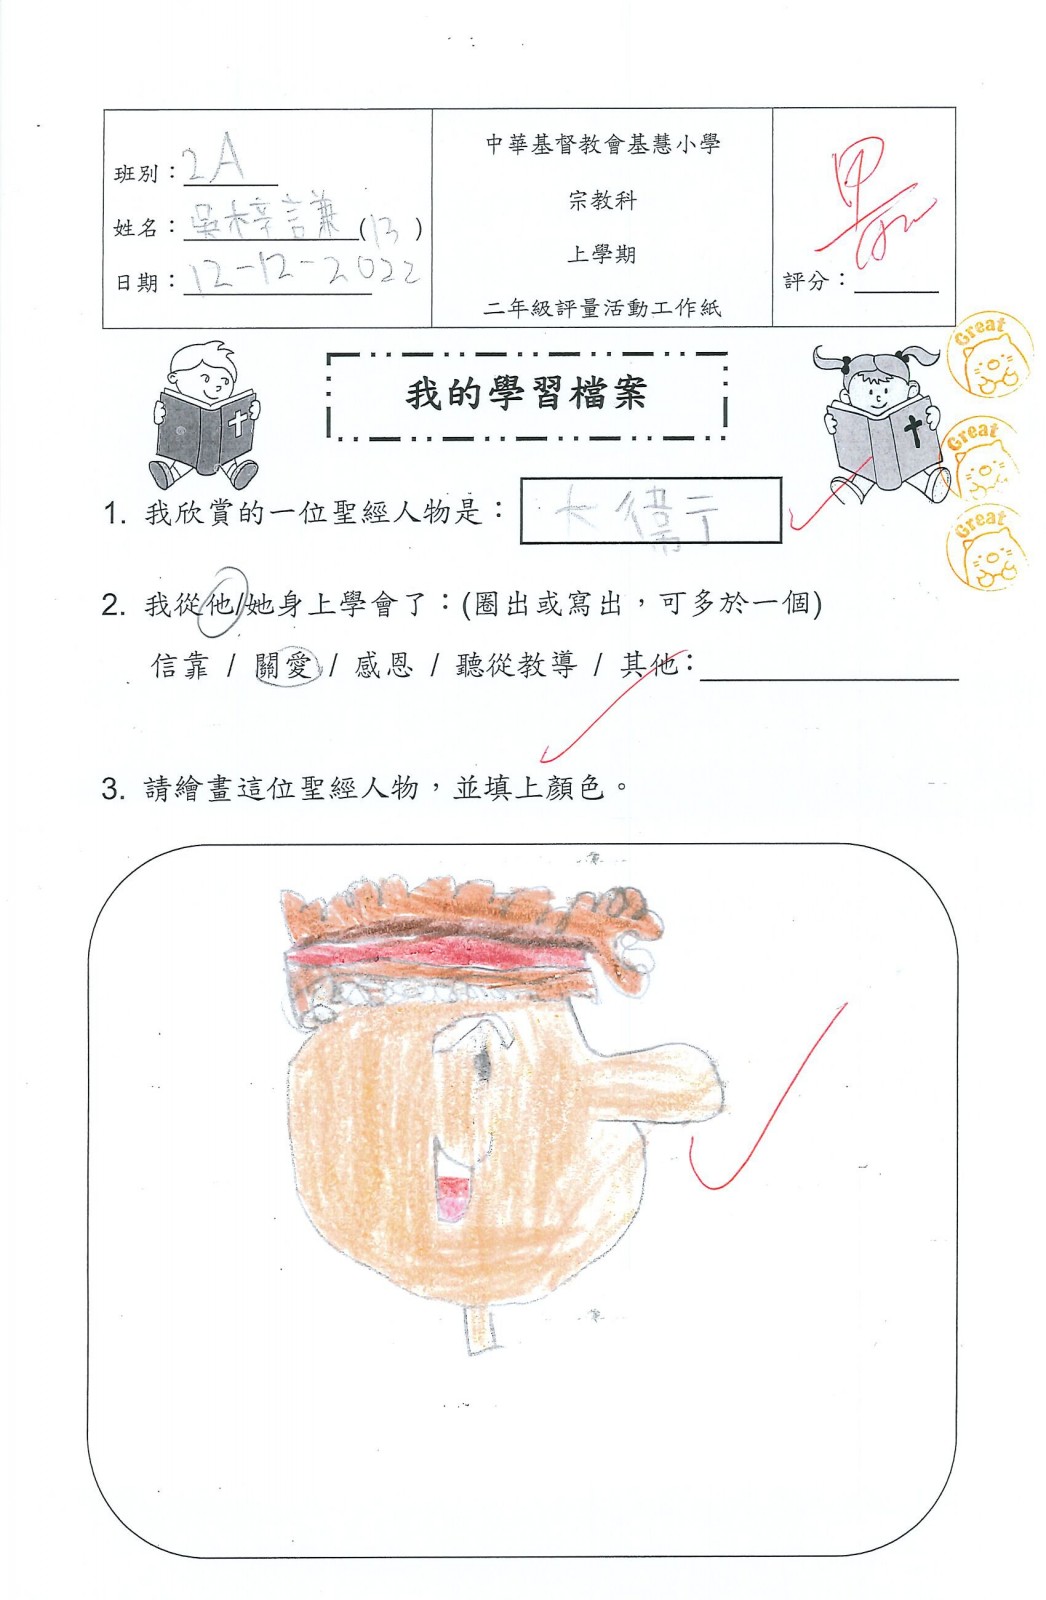 班別：2A
姓名：吳梓謙(13)
日期：12-12-2022
中華基督教會基慧小學
宗教科
上學期
二年級評量活動工作紙
甲
評分：
Great
我的學習檔案
Great
Great
1. 我欣賞的一位聖經人物是：大衛
2. 我從他/她身上學會了：(圈出或寫出，可多於一個)
信靠 / 關愛 / 感恩 / 聽從教導 / 其他：
3. 請繪畫這位聖經人物，並填上顏色。